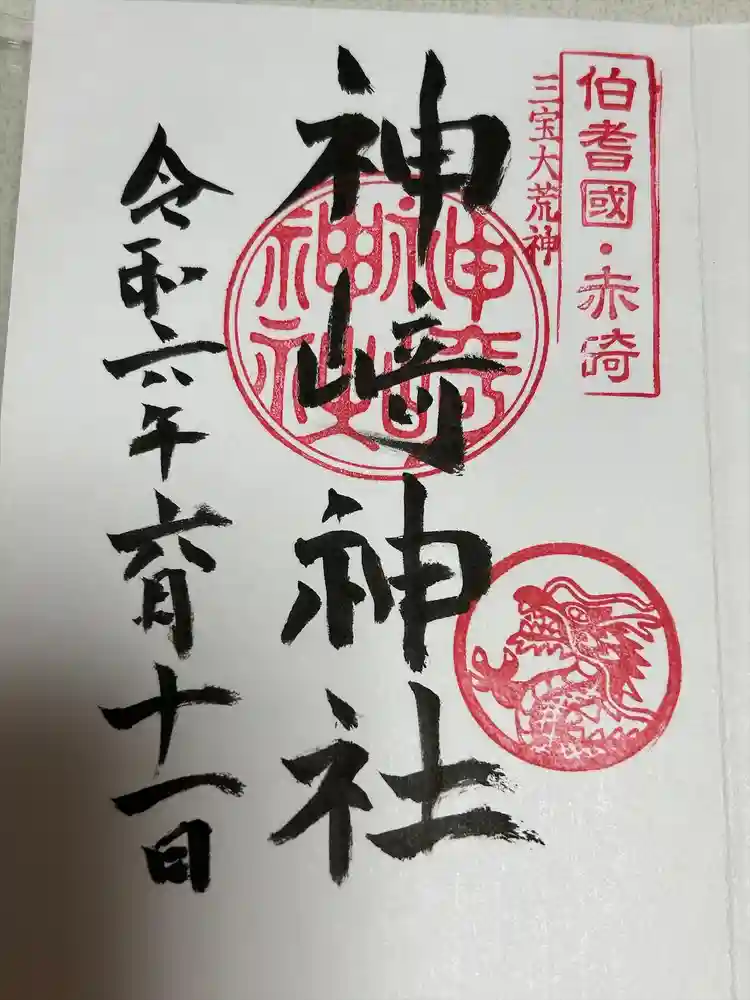 伯耆國・赤崎
三宝大荒神
神崎神社
神﨑神社
令和六年六月十一日